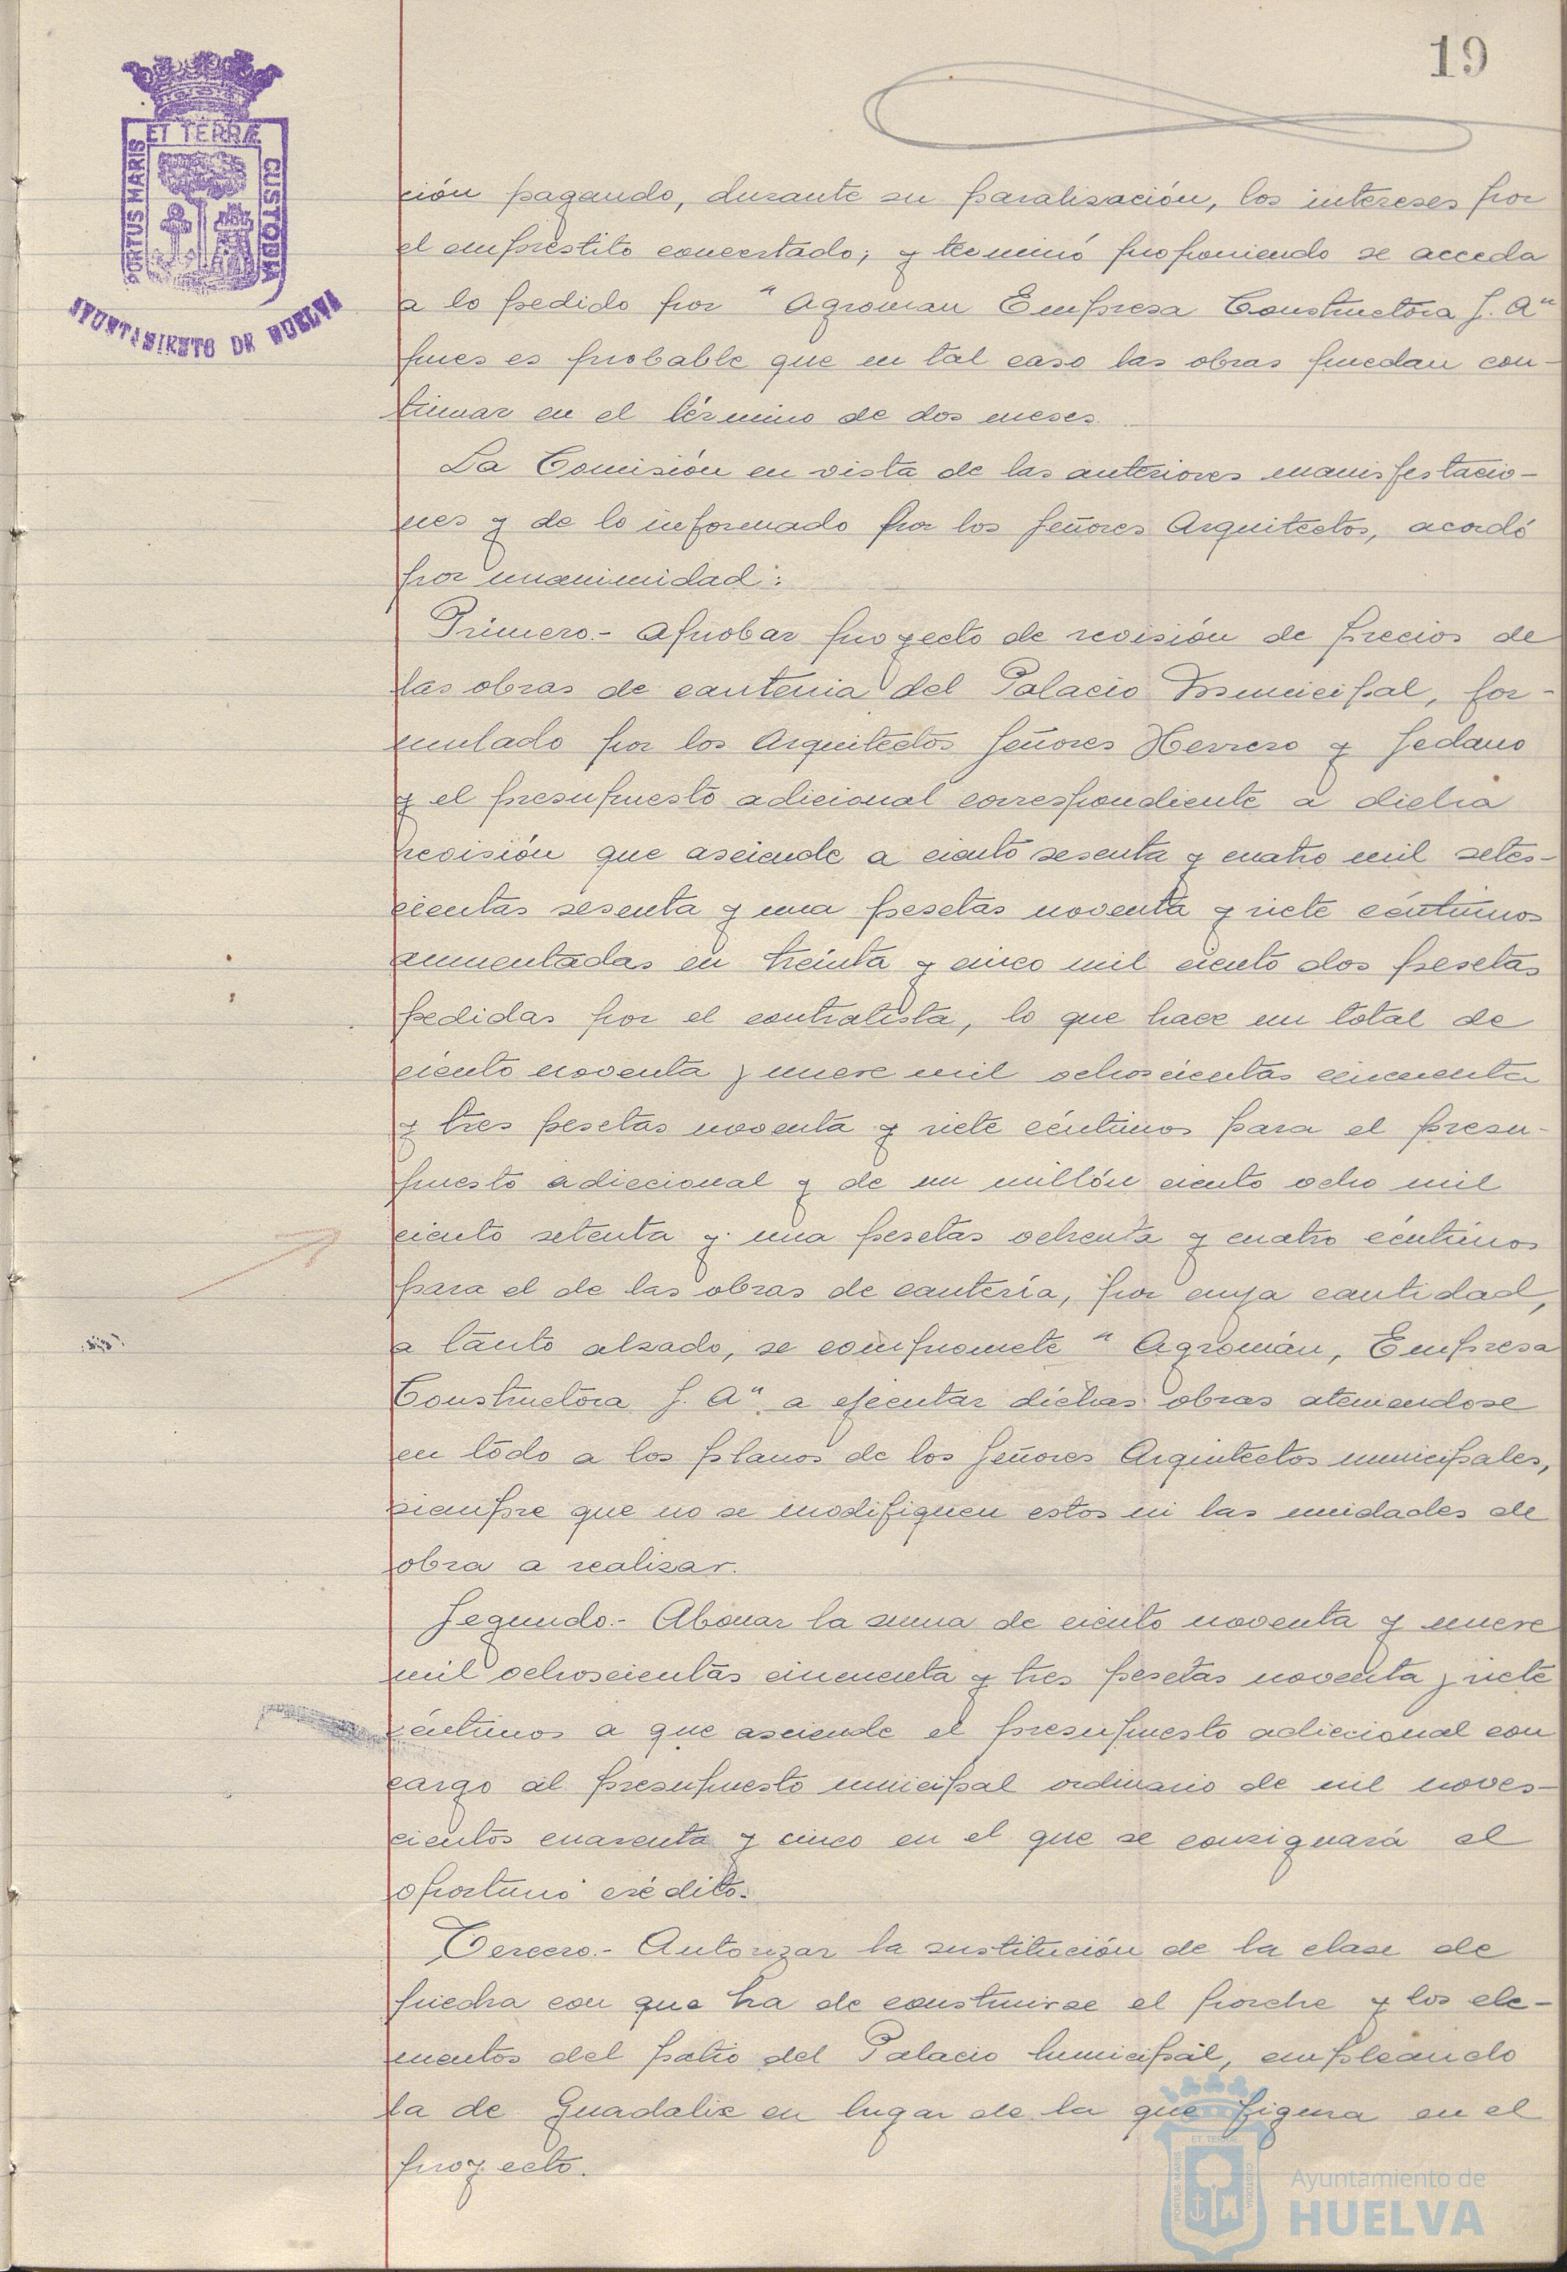 19
ET TERRÆ
PORTUS MARIS
CUSTODIA
AYUNTAMIENTO DE HUELVA
ción pagando, durante su paralización, los intereses por
el empréstito concertado; y terminó proponiendo se acceda
a lo pedido por "Agroman Empresa Constructora S. A"
pues es probable que en tal caso las obras puedan con-
tinuar en el término de dos meses.
La Comisión en vista de las anteriores manisfestacio-
nes y de lo informado por los Señores Arquitectos, acordó
por unanimidad:
Primero.- Aprobar proyecto de revisión de precios de
las obras de cantería del Palacio Municipal, for-
mulado por los Arquitectos Señores Herrero y Sedano
y el presupuesto adicional correspondiente a dicha
revisión que asciende a ciento sesenta y cuatro mil setes-
cientas sesenta y una pesetas noventa y siete céntimos
aumentadas en treinta y cinco mil ciento dos pesetas
pedidas por el contratista, lo que hace un total de
ciento noventa y nueve mil ochoscientas cincuenta
y tres pesetas noventa y siete céntimos para el presu-
puesto adiccional y de un millón ciento ocho mil
ciento setenta y una pesetas ochenta y cuatro céntimos
para el de las obras de cantería, por cuya cantidad,
a tanto alzado, se compromete "Agromán, Empresa
Constructora S. A". a ejecutar dichas obras ateniendose
en todo a los planos de los Señores Arquitectos municipales,
siempre que no se modifiquen estos ni las unidades de
obra a realizar.
Segundo.- Abonar la suma de ciento noventa y nueve
mil ochoscientas cincuenta y tres pesetas noventa y siete
céntimos a que asciende el presupuesto adiccional con
cargo al presupuesto municipal ordinario de mil noves-
cientos cuarenta y cinco en el que se consignará el
oportuno crédito.
Tercero.- Autorizar la sustitución de la clase de
piedra con que ha de construirse el porche y los ele-
mentos del patio del Palacio Municipal, empleando
la de Guadalix en lugar de la que figura en el
proyecto.
ET TERRÆ
PORTUS MARIS
CUSTODIA
Ayuntamiento de
HUELVA